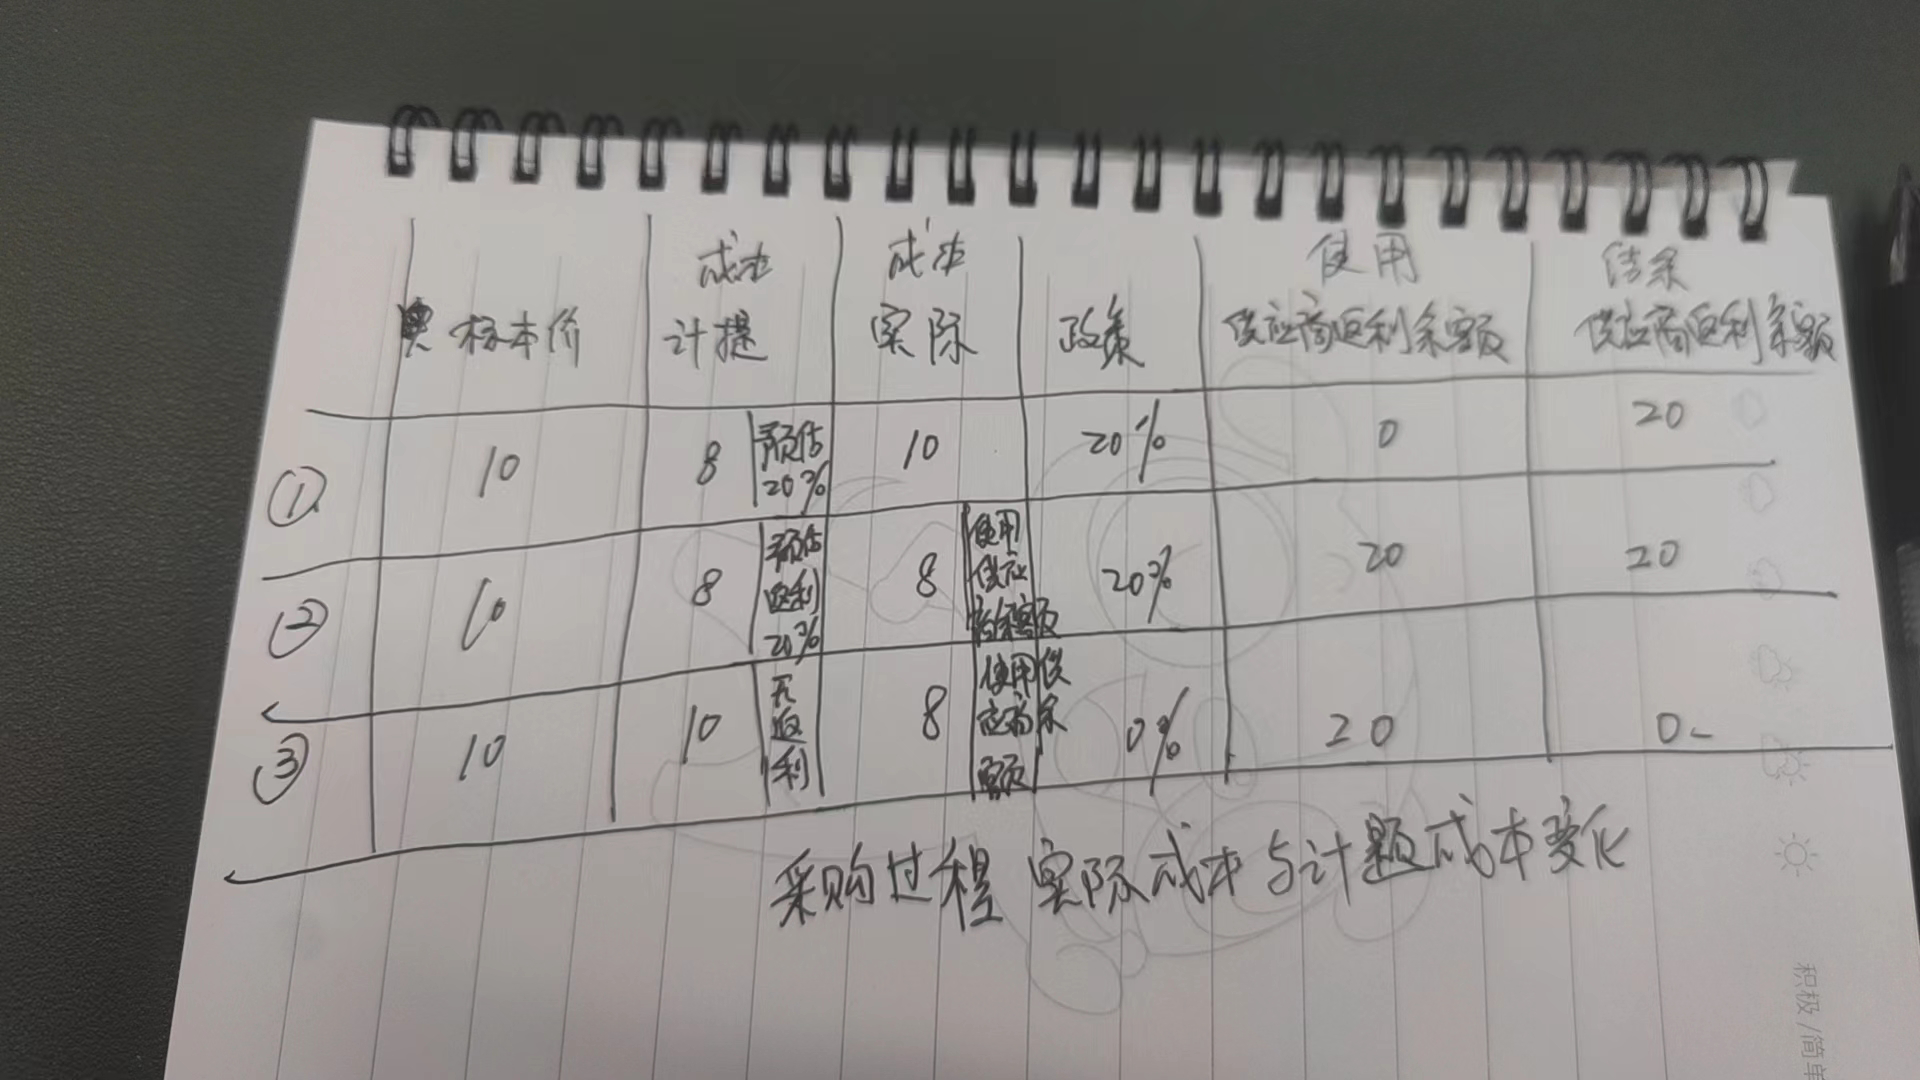 成本 成本 使用 结余
标本价 计提 实际 政策 供应商返利余额 供应商返利余额
① 10 8 预估20% 10 20% 0 20
② 10 8 预估返利20% 8 使用供应商余额 20% 20 20
③ 10 10 无返利 8 使用供应商余额 0% 20 0
采购过程 实际成本与计题成本变化
积极/简单